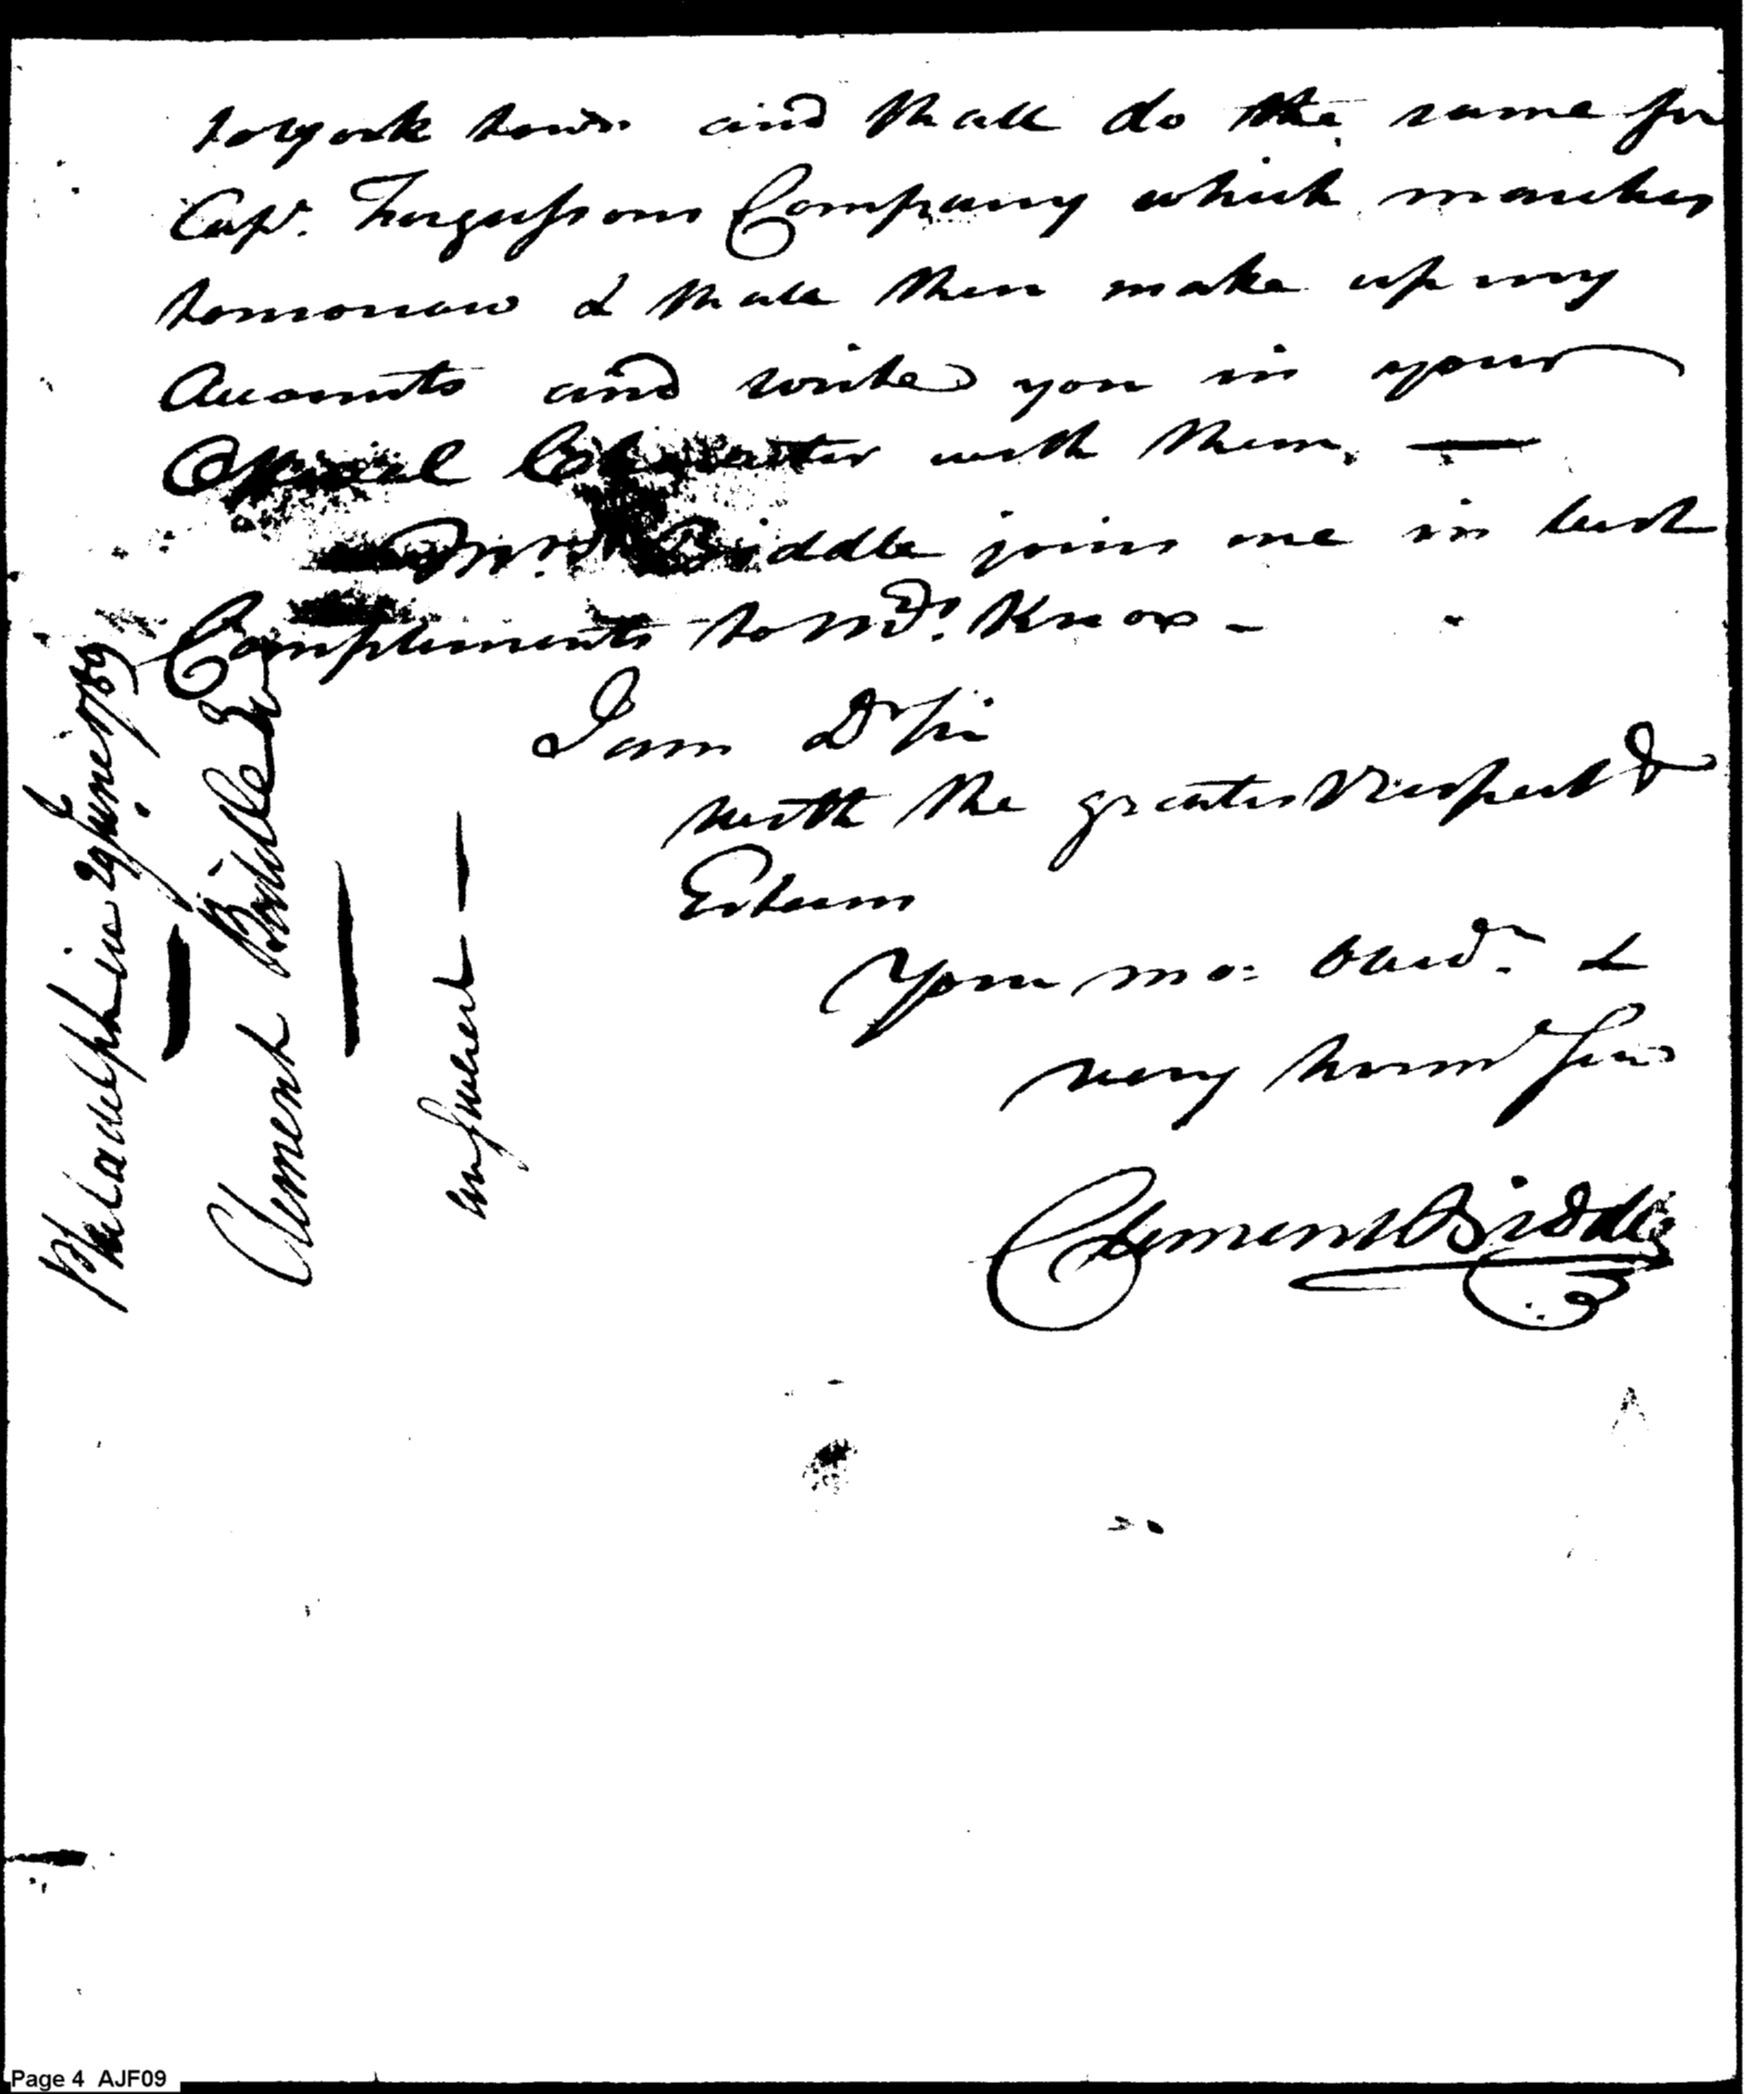 to York town and shall do the same for
Capt. Fergussons Company which marches
tomorrow & shall then make up my
Accounts and write you in your
Official Character with them, —
Mrs. Biddle joins me in best
Complements to Mrs. Knox -
I am Dr Sir
with the greatest Respect &
Esteem
Your mo: Obedt. &
very hum Serv
Clement Biddle
Philadelphia 29 June 1789
Clement Biddle Esq
answered —
Page 4 AJF09